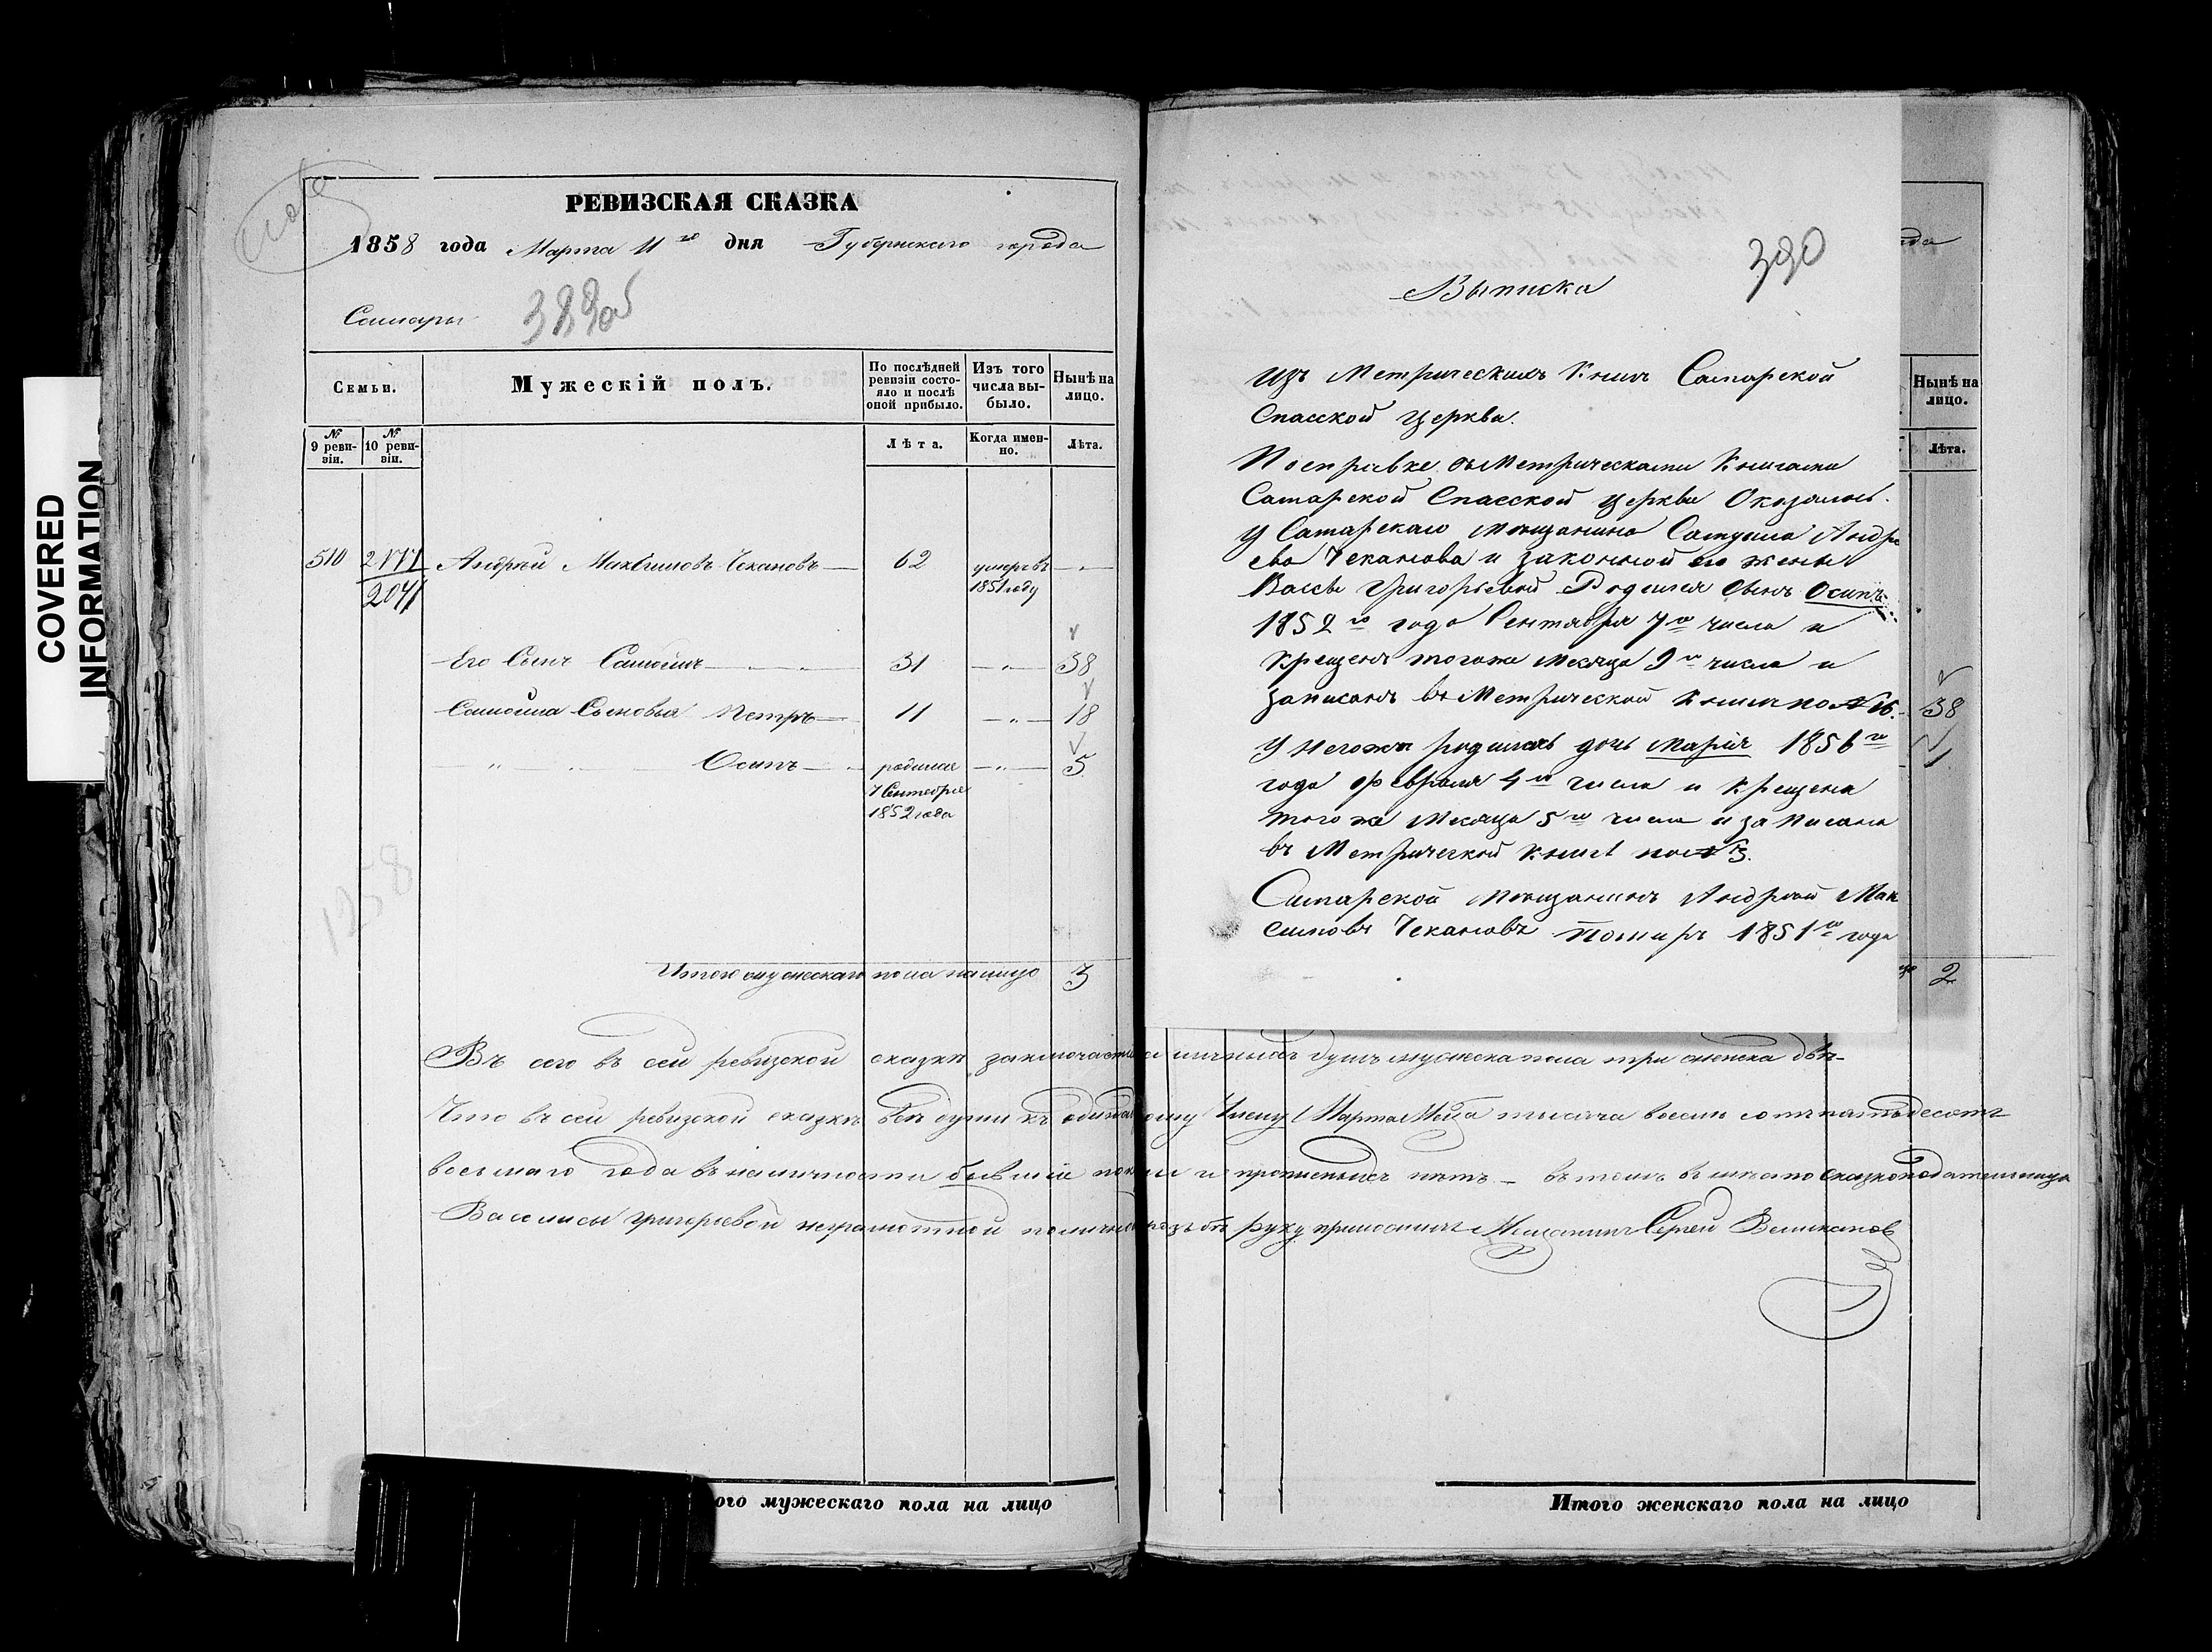 COVERED
INFORMATION
РЕВИЗСКАЯ СКАЗКА
1858 года Марта 11го дня Губернскаго города
Самары
Семьи.
Мужескій полъ.
По послѣдней ревизіи состояло и послѣ оной прибыло.
Изъ того числа выбыло.
Нынѣ на лицо.
№ 9 ревизіи.
№ 10 ревизіи.
Лѣта.
Когда именно.
Лѣта.
510 Андрей Максимовъ Чекановъ 62 умеръ въ 1851 году
2041
Его Сынъ Самойла 31 38
Самойла Сыновья Петръ 11 18
Осипъ родился 7 Сентября 1852 года 5
1258
Итого мужескаго пола налицо 3
390
Выписка
Изъ Метрическихъ Книгъ Самарской
Спасской Церкви.
По справке съ Метрическими Книгами
Самарской Спасской Церкви Оказалось.
У Самарскаго мещанина Самуила Андре
ева Чеканова и законной его жены
Вассы Григорьевой Родился сынъ Осипъ
1852го года Сентября 7го числа и
Крещенъ тогоже месяца 9го числа и
записанъ въ Метрической Книге по № 16.
У негоже родилась дочь Марія 1856го
года февраля 4го числа и крещена
тогоже месяца 5го числа и записана
въ Метрической Книге по № 3.
Самарской мещанинъ Андрей Мак
симовъ Чекановъ Помиръ 1851го года
Нынѣ на лицо.
Лѣта.
38
2
Въ сего въ сей ревизской сказкѣ заключается наличныхъ душъ мужеска пола три женска двѣ
Что въ сей ревизской сказкѣ всѣ души къ Числу Марта тысяча восемь сотъ пятьдесятъ
восьмаго года въ наличности бывшіе и прописныхъ нѣтъ — въ томъ вмѣсто сказкоподательницы
Василисы Григорьевой неграмотной по личной прозьбѣ руку приложилъ Мещанинъ Сергей Великановъ
ого мужескаго пола на лицо
Итого женскаго пола на лицо